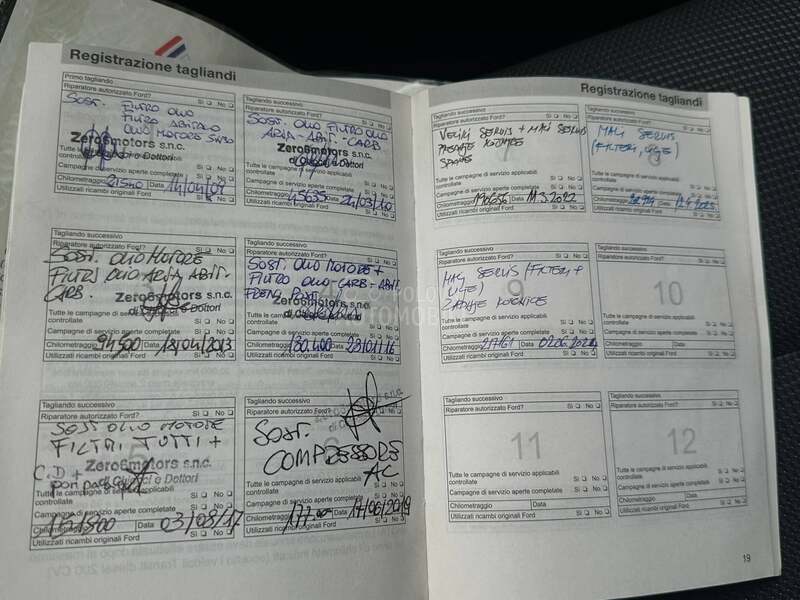 Registrazione tagliandi
Primo tagliando
Riparatore autorizzato Ford? Sì No
SOST. FILTRO OLIO
FILTRO ABITACOLO
OLIO MOTORE 5W30
Zero6motors s.n.c.
di Dottori
Tutte le campagne
controllate
Campagne di servizio aperte completate Sì No
Chilometraggio 21540 Data 14/04/09
Utilizzati ricambi originali Ford? Sì No
Tagliando successivo
Riparatore autorizzato Ford? Sì No
SOST. OLIO FILTRO OLIO
ARIA - ABIT. - CARB
Zero6motors s.n.c.
Dottori
Tutte le campagne
controllate
Campagne di servizio aperte completate Sì No
Chilometraggio 45635 Data 24/03/10
Utilizzati ricambi originali Ford? Sì No
Tagliando successivo
Riparatore autorizzato Ford? Sì No
SOST. OLIO MOTORE
FILTRI OLIO ARIA ABIT.
CARB.
Zero6motors s.n.c.
Dottori
controllate
Campagne di servizio aperte completate Sì No
Chilometraggio 94500 Data 18/04/2013
Utilizzati ricambi originali Ford? Sì No
Tagliando successivo
Riparatore autorizzato Ford? Sì No
SOST. OLIO MOTORE +
FILTRO OLIO CARB - ABIT.
Zero6motors s.n.c.
controllate
Campagne di servizio aperte completate Sì No
Chilometraggio 130.400 Data 23/01/16
Utilizzati ricambi originali Ford? Sì No
Tagliando successivo
Riparatore autorizzato Ford? Sì No
SOST OLIO MOTORE
FILTRI TUTTI +
C.D +
Zero6motors s.n.c.
e Dottori
Tutte le campagne
controllate
Campagne di servizio aperte completate Sì No
Data 03/08/17
Utilizzati ricambi originali Ford? Sì No
Tagliando successivo
Riparatore autorizzato Ford?
SOST.
COMPRESSORE
AC
Tutte le campagne di servizio applicabili
controllate Sì No
Campagne di servizio aperte completate Sì No
Chilometraggio Data 17/06/2019
Utilizzati ricambi originali Ford? Sì No
Registrazione tagliandi
Tagliando successivo
Riparatore autorizzato Ford? Sì No
VELIKI SERVIS + MALI SERVIS
7
Tutte le campagne di servizio applicabili
controllate Sì No
Campagne di servizio aperte completate Sì No
Chilometraggio 190656 Data 11.3.2022
Utilizzati ricambi originali Ford? Sì No
Tagliando successivo
Riparatore autorizzato Ford? Sì No
MALI SERVIS
(FILTERI, ULJE)
Tutte le campagne di servizio applicabili
controllate Sì No
Campagne di servizio aperte completate Sì No
Chilometraggio Data
Utilizzati ricambi originali Ford? Sì No
Tagliando successivo
Riparatore autorizzato Ford? Sì No
MALI SERVIS (FILTERI +
ULJE)
ZADNJE KOČNICE
9
Tutte le campagne di servizio applicabili
controllate Sì No
Campagne di servizio aperte completate Sì No
Chilometraggio Data 02.06.2024
Utilizzati ricambi originali Ford? Sì No
Tagliando successivo
Riparatore autorizzato Ford? Sì No
10
Tutte le campagne di servizio applicabili
controllate Sì No
Campagne di servizio aperte completate Sì No
Chilometraggio Data
Utilizzati ricambi originali Ford? Sì No
Tagliando successivo
Riparatore autorizzato Ford? Sì No
11
Tutte le campagne di servizio applicabili
controllate Sì No
Campagne di servizio aperte completate Sì No
Chilometraggio Data
Utilizzati ricambi originali Ford? Sì No
Tagliando successivo
Riparatore autorizzato Ford? Sì No
12
Tutte le campagne di servizio applicabili
controllate Sì No
Campagne di servizio aperte completate Sì No
Chilometraggio Data
Utilizzati ricambi originali Ford? Sì No
19